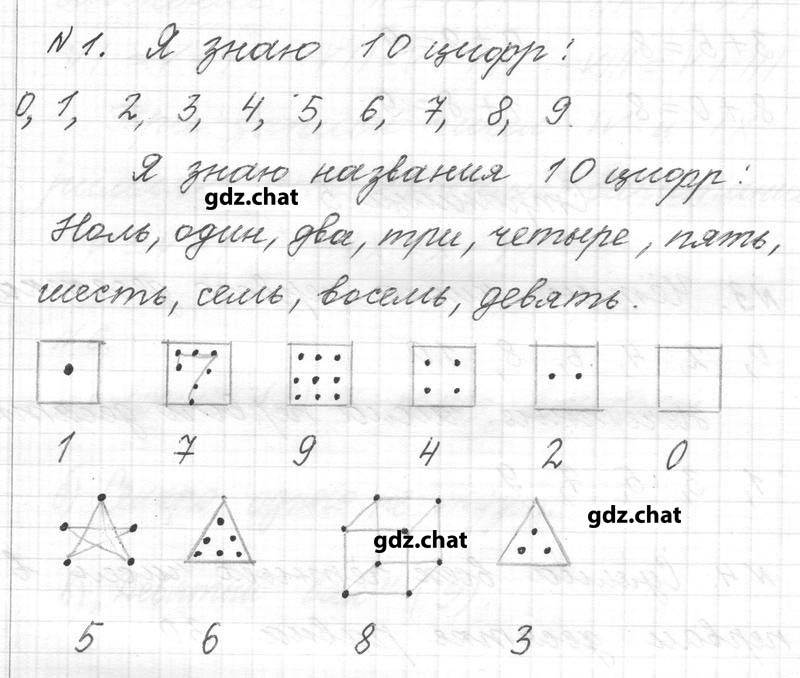 № 1. Я знаю 10 цифр:
0, 1, 2, 3, 4, 5, 6, 7, 8, 9.
Я знаю названия 10 цифр:
gdz.chat
Ноль, один, два, три, четыре, пять,
шесть, семь, восемь, девять.
1 7 9 4 2 0
gdz.chat
gdz.chat
5 6 8 3